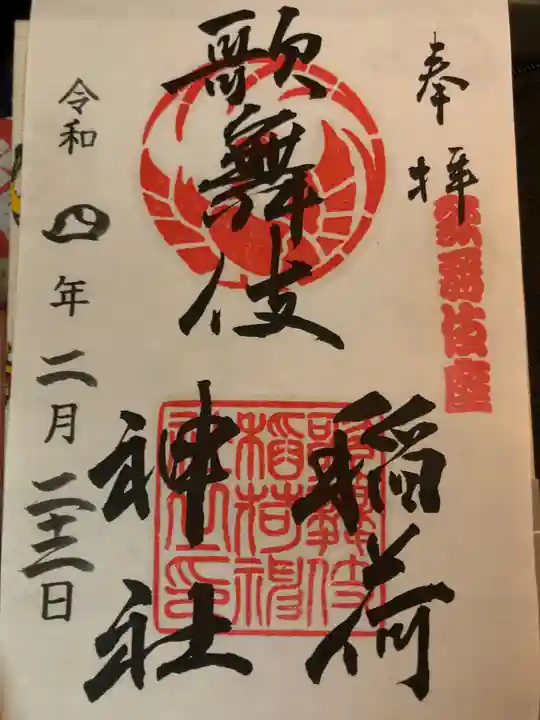 奉拝
歌舞伎座
歌舞伎
稲荷
神社
歌舞伎
稲荷神
社之印
令和四年二月二十二日